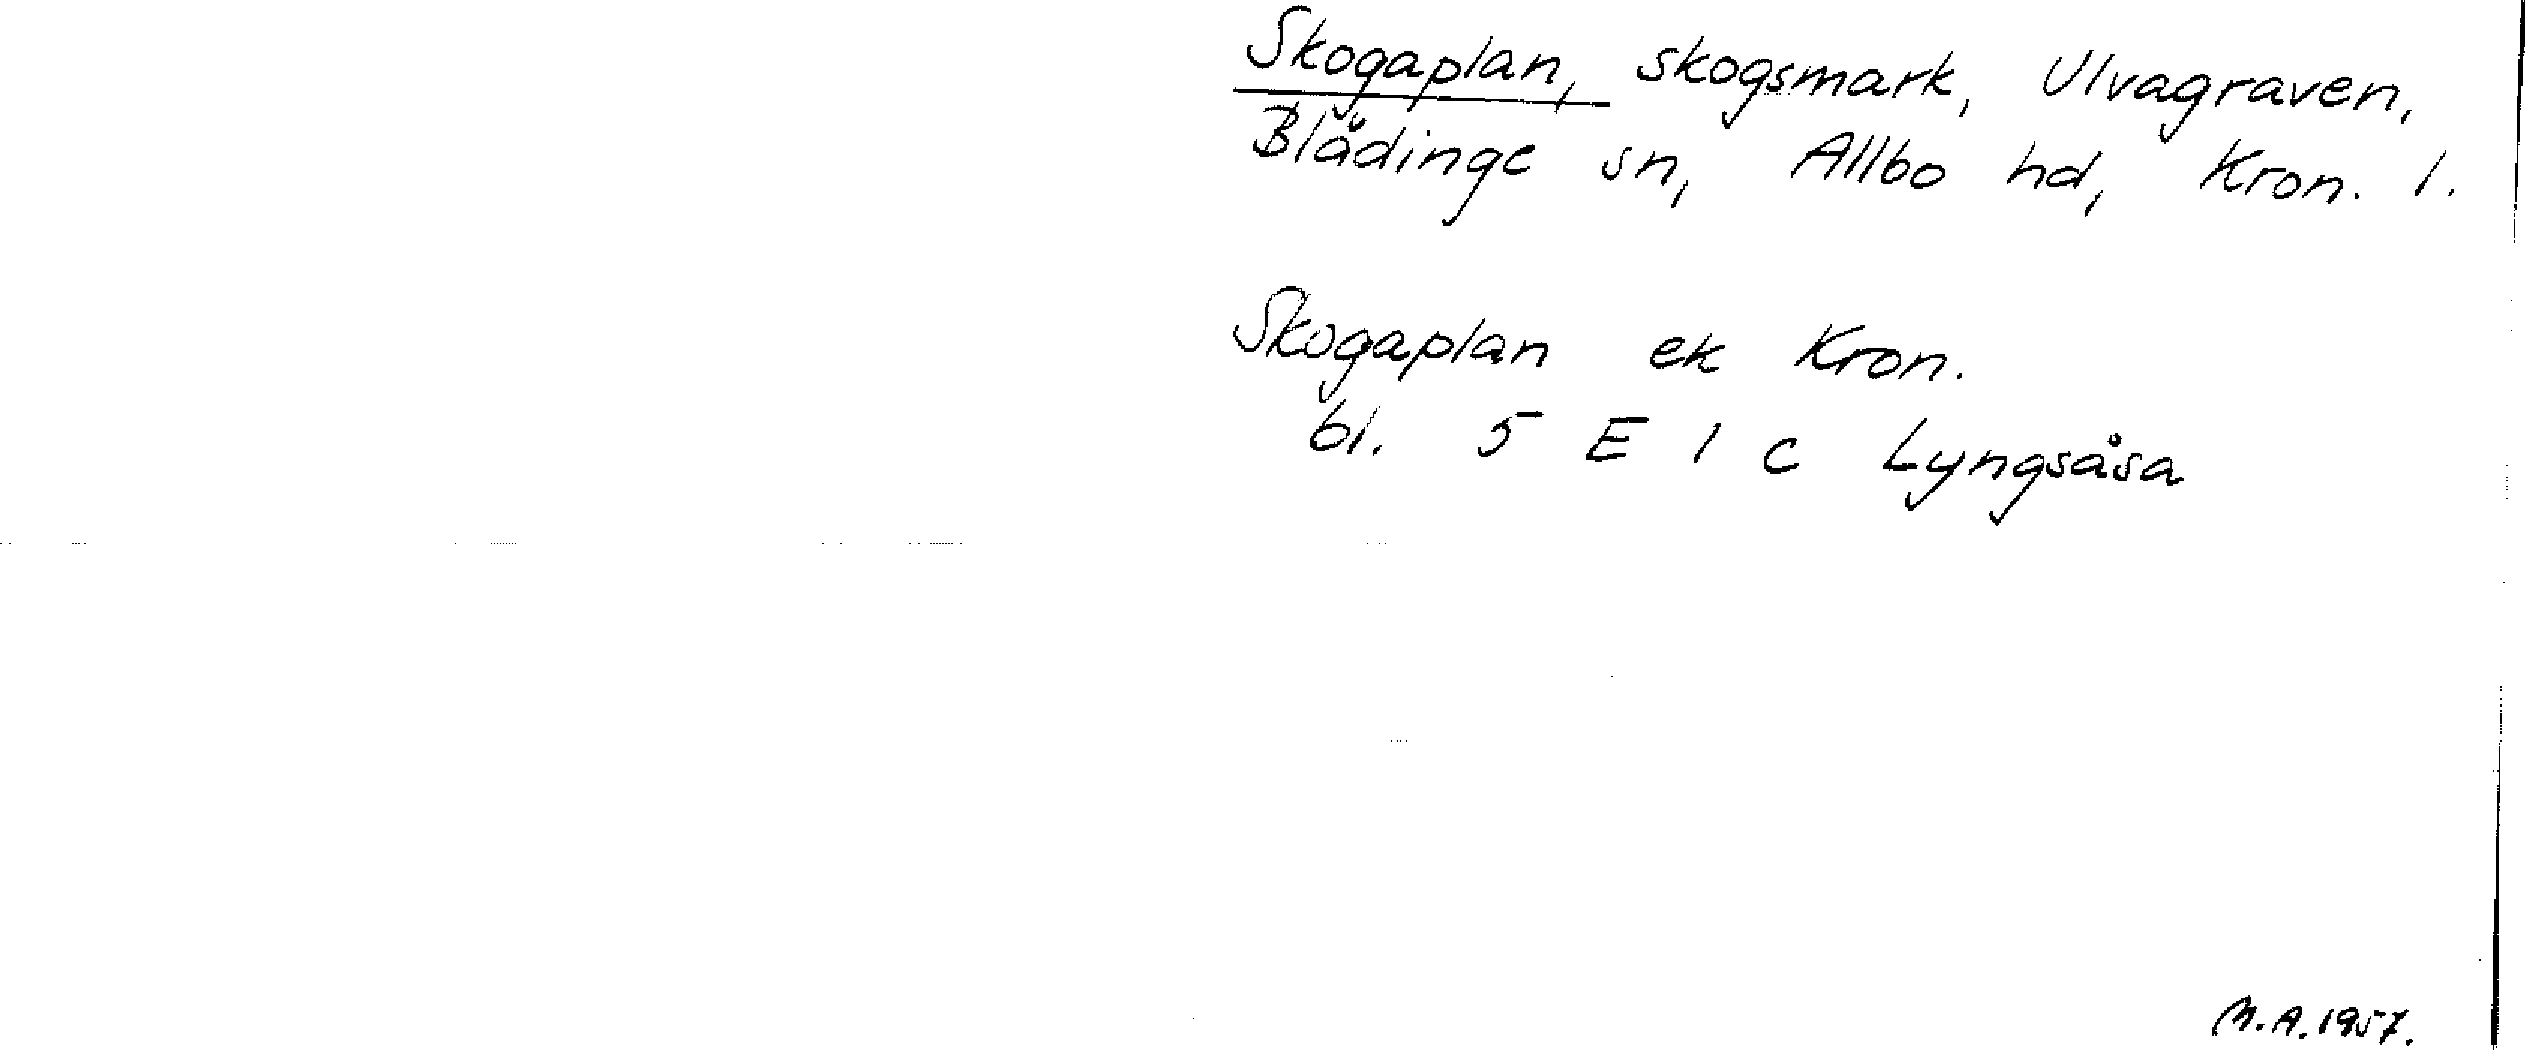 Skogaplan, skogsmark, Ulvagraven,
Blädinge sn, Allbo hd, Kron. l.
Skogaplan ek Kron.
bl. 5 E 1 c Lyngsåsa
M.A.1957.